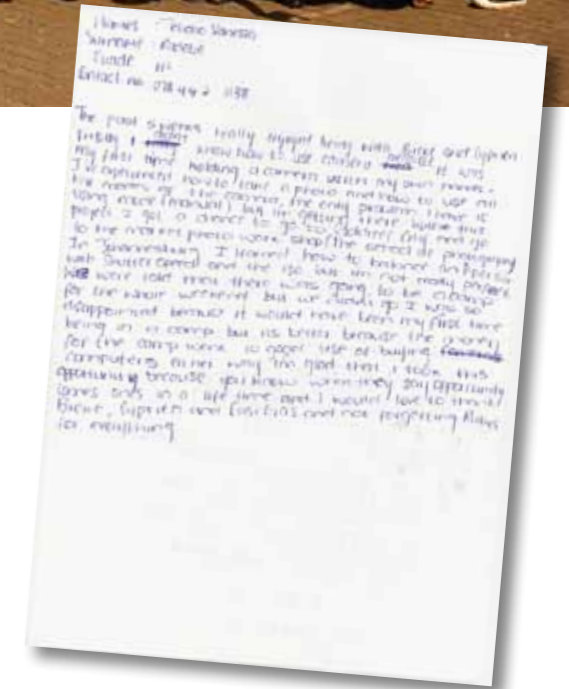 Names
Surname
Grade 11
Contact no 078
The past really enjoyed being with and
Firstly I know how to use camera it was
my first time holding a camera with my own hands.
I've learned how to take a photo and how to use all
the modes of the camera, the only problem I have is
using mode (manual) but im getting there within this
project I got a chance to go to city and go
to the market photo work shop (the school of photography
In Johannesburg I learned how to balance an Aperture
with Shutterspeed and the iso but im not really
We were told that there was going to be a camp
for the whole weekend but we didn't go I was so
disappointed because it would have been my first time
being in a camp but its better because the money
for the camp went to good use of buying
Computers either way im glad that I took this
oppurtunity because you know when they say oppurtunity
comes ones in a life time and I would love to thank
and and not forgetting
for everything